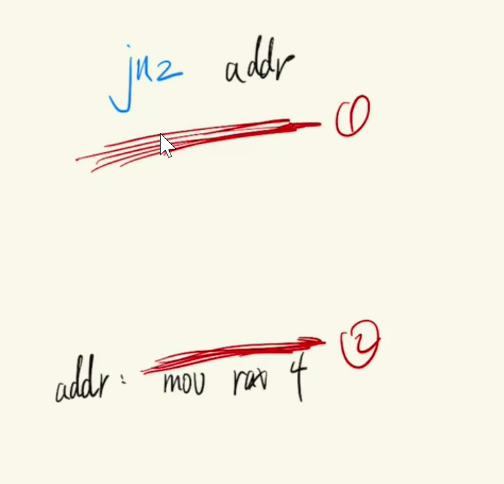 jnz addr
①
②
addr: mov rax 4